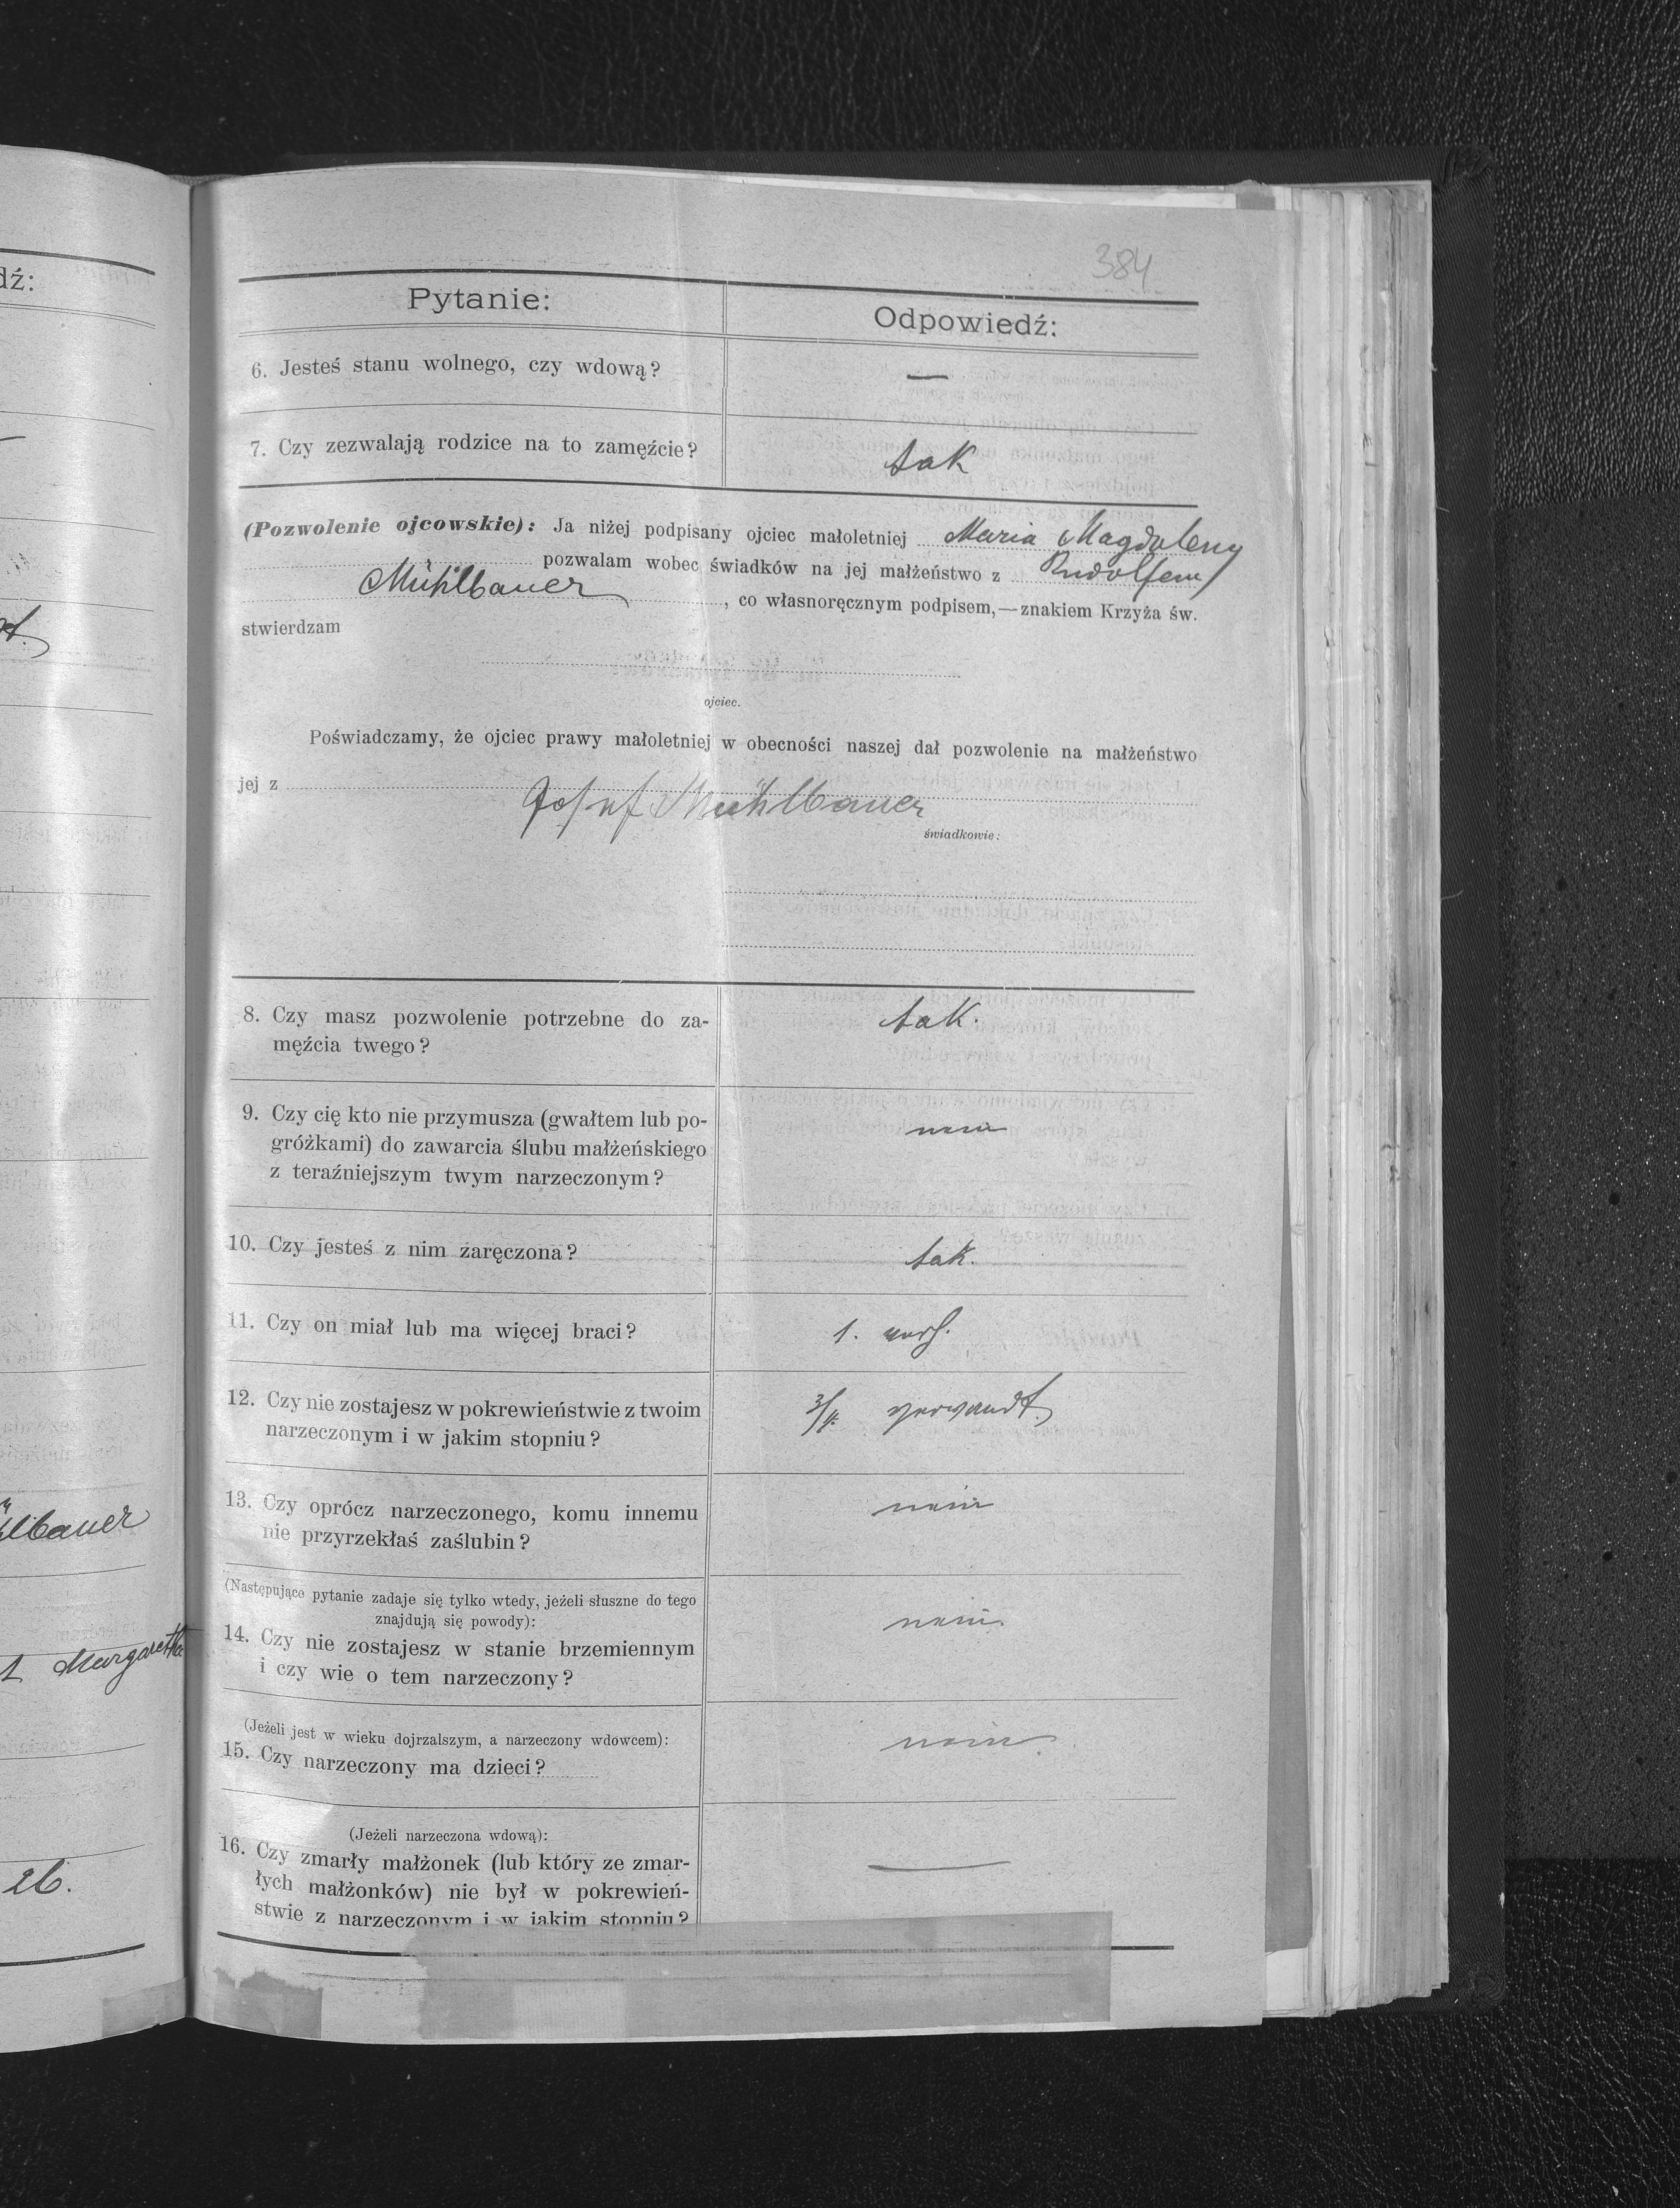 384
dź:
Pytanie:
Odpowiedź:
6. Jesteś stanu wolnego, czy wdową?
—
7. Czy zezwalają rodzice na to zamęźcie?
tak
(Pozwolenie ojcowskie): Ja niżej podpisany ojciec małoletniej Maria Magdaleny
pozwalam wobec świadków na jej małżeństwo z Rudolfem
Mühlbauer, co własnoręcznym podpisem,—znakiem Krzyża św.
stwierdzam
ojciec.
Poświadczamy, że ojciec prawy małoletniej w obecności naszej dał pozwolenie na małżeństwo
jej z
Josef Mühlbauer
świadkowie:
8. Czy masz pozwolenie potrzebne do za-
męźcia twego?
tak.
9. Czy cię kto nie przymusza (gwałtem lub po-
gróżkami) do zawarcia ślubu małżeńskiego
z teraźniejszym twym narzeczonym?
nein
10. Czy jesteś z nim zaręczona?
tak.
11. Czy on miał lub ma więcej braci?
1.
12. Czy nie zostajesz w pokrewieństwie z twoim
narzeczonym i w jakim stopniu?
3/4 verwandt
13. Czy oprócz narzeczonego, komu innemu
nie przyrzekłaś zaślubin?
nein
(Następujące pytanie zadaje się tylko wtedy, jeżeli słuszne do tego
znajdują się powody):
14. Czy nie zostajesz w stanie brzemiennym
i czy wie o tem narzeczony?
nein.
(Jeżeli jest w wieku dojrzalszym, a narzeczony wdowcem):
15. Czy narzeczony ma dzieci?
nein.
(Jeżeli narzeczona wdową):
16. Czy zmarły małżonek (lub który ze zmar-
łych małżonków) nie był w pokrewień-
stwie z narzeczonym i w jakim stopniu?
—
lbauer
Margaretha
26.